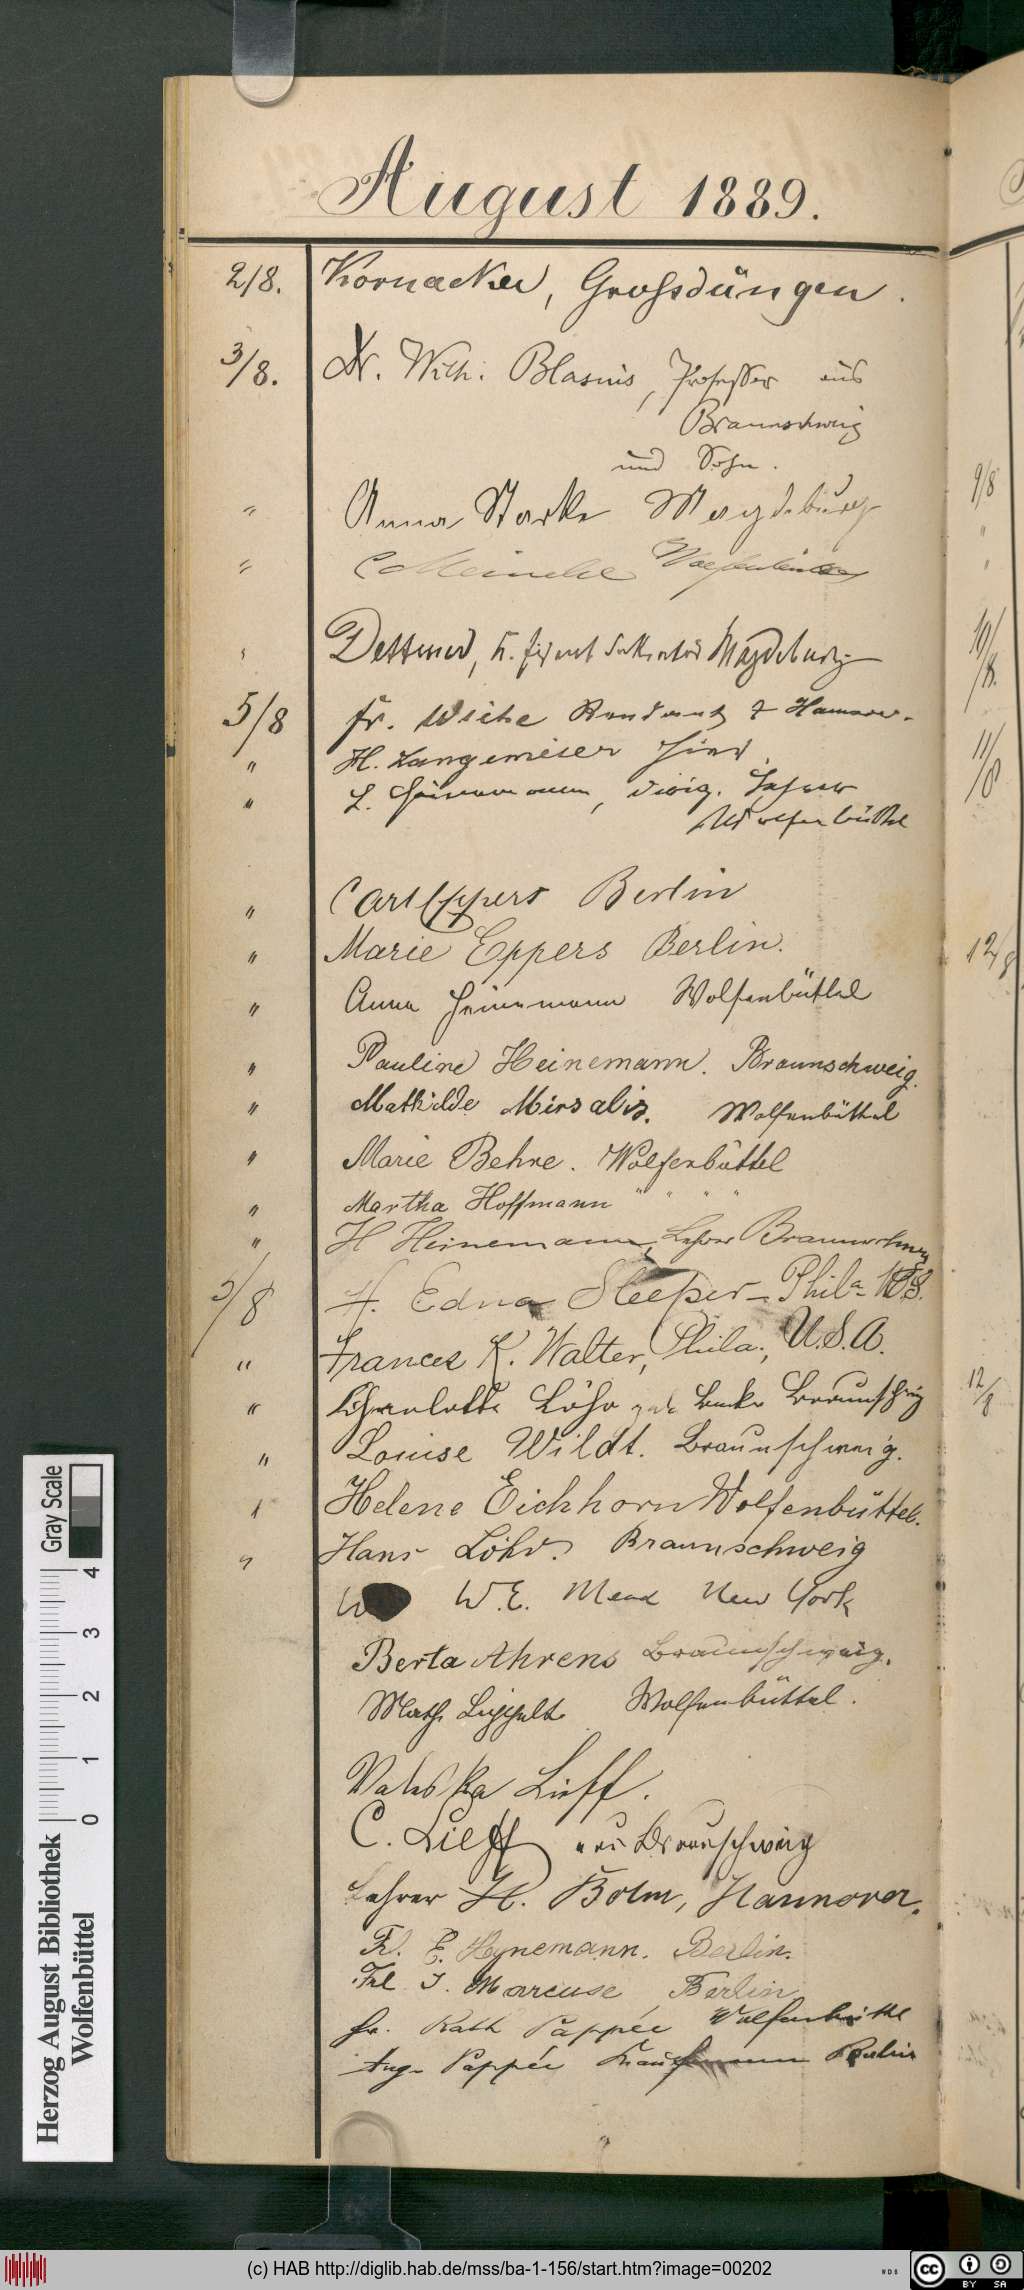 August 1889.
2/8. Kornacker, Grossdüngen.
3/8. Dr. Wilh. Blasius, Professor aus
Braunschweig
und Sohn.
" Anna Starke Magdeburg
" C Meinecke Wolfenbüttel
" Dettmer, Magdeburg
5/8 Fr. Wiehe Hannover.
" H. Langemeier
" L. Heinemann, dirig. Lehrer
Wolfenbüttel
" Carl Eppers Berlin
" Marie Eppers Berlin.
" Anna Heinemann Wolfenbüttel
" Pauline Heinemann. Braunschweig.
" Mathilde Mirsalis. Wolfenbüttel
" Marie Behne. Wolfenbüttel
" Martha Hoffmann " " " "
" H Heinemann, Lehrer Braunschweig
5/8 H. Edna Sleeper – Phila – U.S.
" Frances K. Walter, Phila., U.S.A.
" Charlotte Löhr Braunschweig
" Louise Wildt. Braunschweig.
" Helene Eichhorn Wolfenbüttel.
" Hans Löhr. Braunschweig
W W. E. Mead New York
Berta Ahrens Braunschweig.
Math. Lippelt Wolfenbüttel.
Valeska Lieff.
C. Lieff aus Braunschweig
Lehrer H. Bolm, Hannover.
Frl. E. Heynemann. Berlin.
Frl J. Marcuse Berlin
Fr. Rath Pappée Wolfenbüttel
Aug. Pappée Kaufmann Berlin
9/8
"
"
10/8.
11/8
12/8
12/8
Gray Scale
0 1 2 3 4
Herzog August Bibliothek
Wolfenbüttel
(c) HAB http://diglib.hab.de/mss/ba-1-156/start.htm?image=00202
cc BY SA